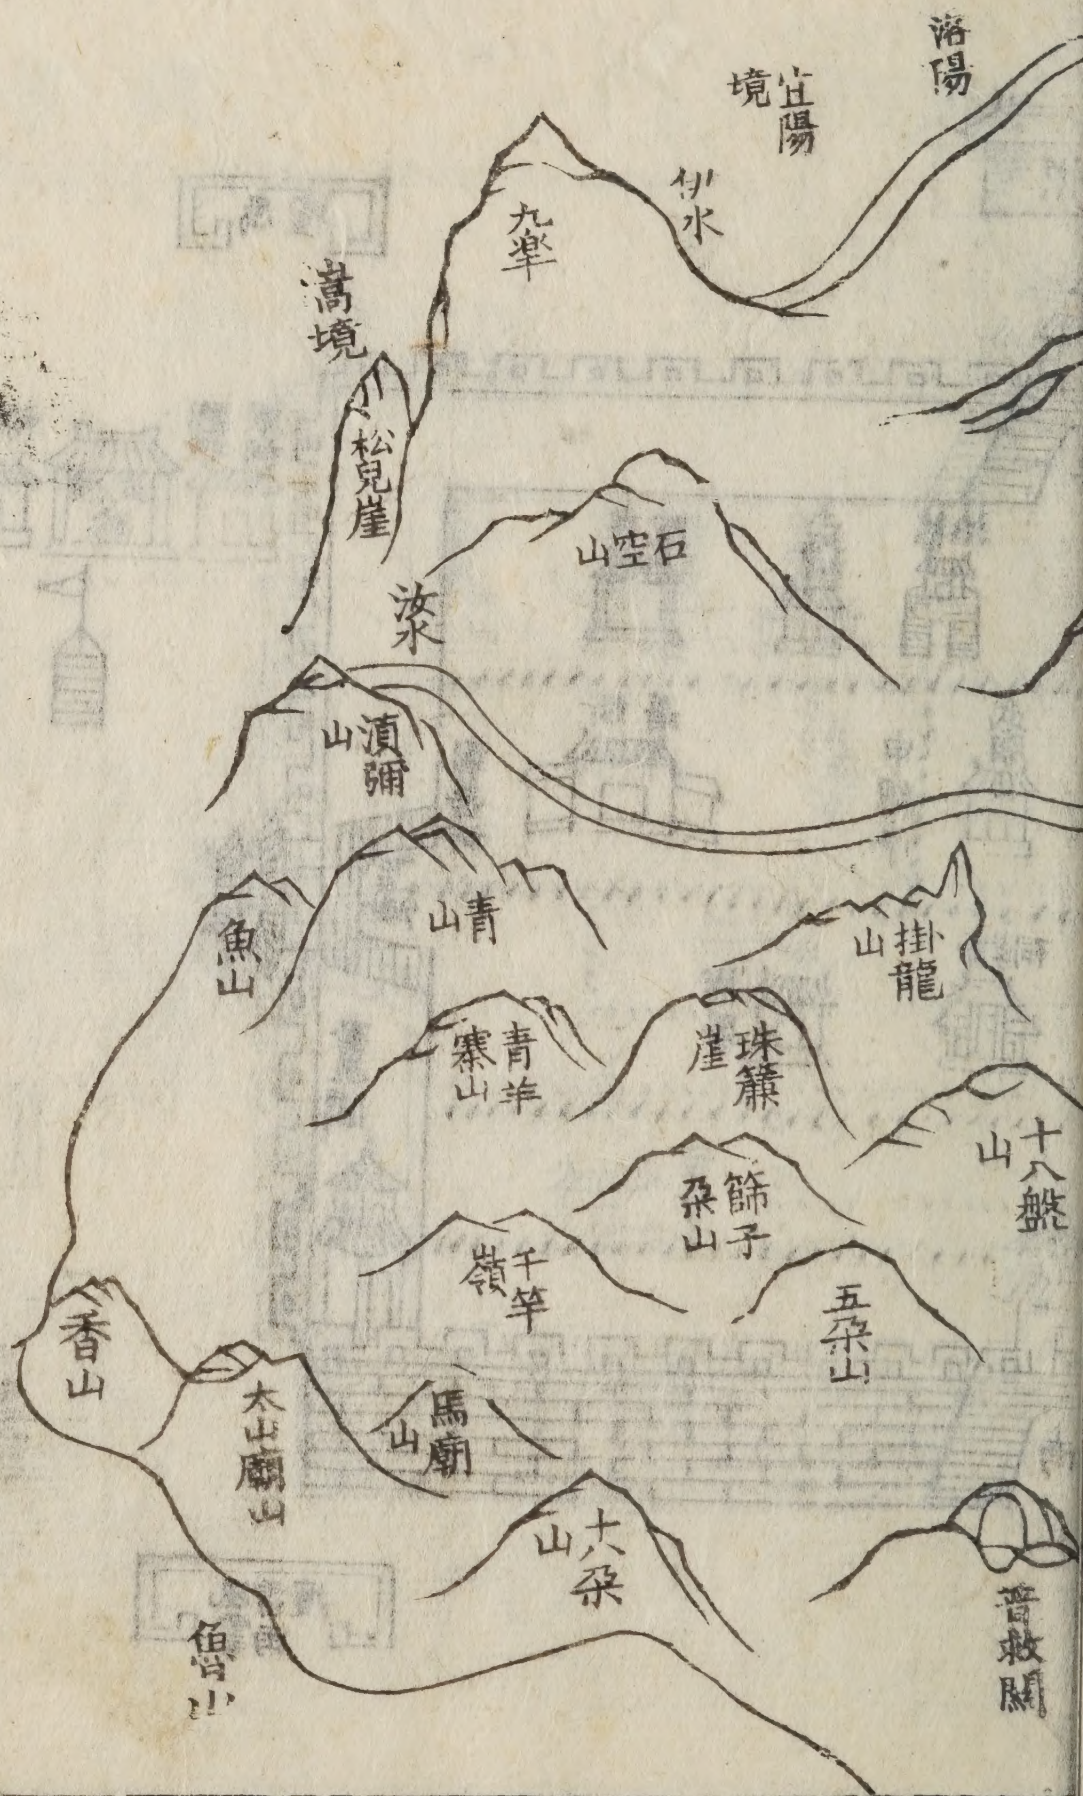 洛陽
宜陽境
伊水
九皐
嵩境
松兒崖
石空山
汝水
湏彌山
青山
魚山
掛龍山
珠簾崖
青羊寨山
十八盤山
篩子朶山
千竿嶺
五朶山
香山
太山廟山
馬廟山
十八朶山
普救關
魯山